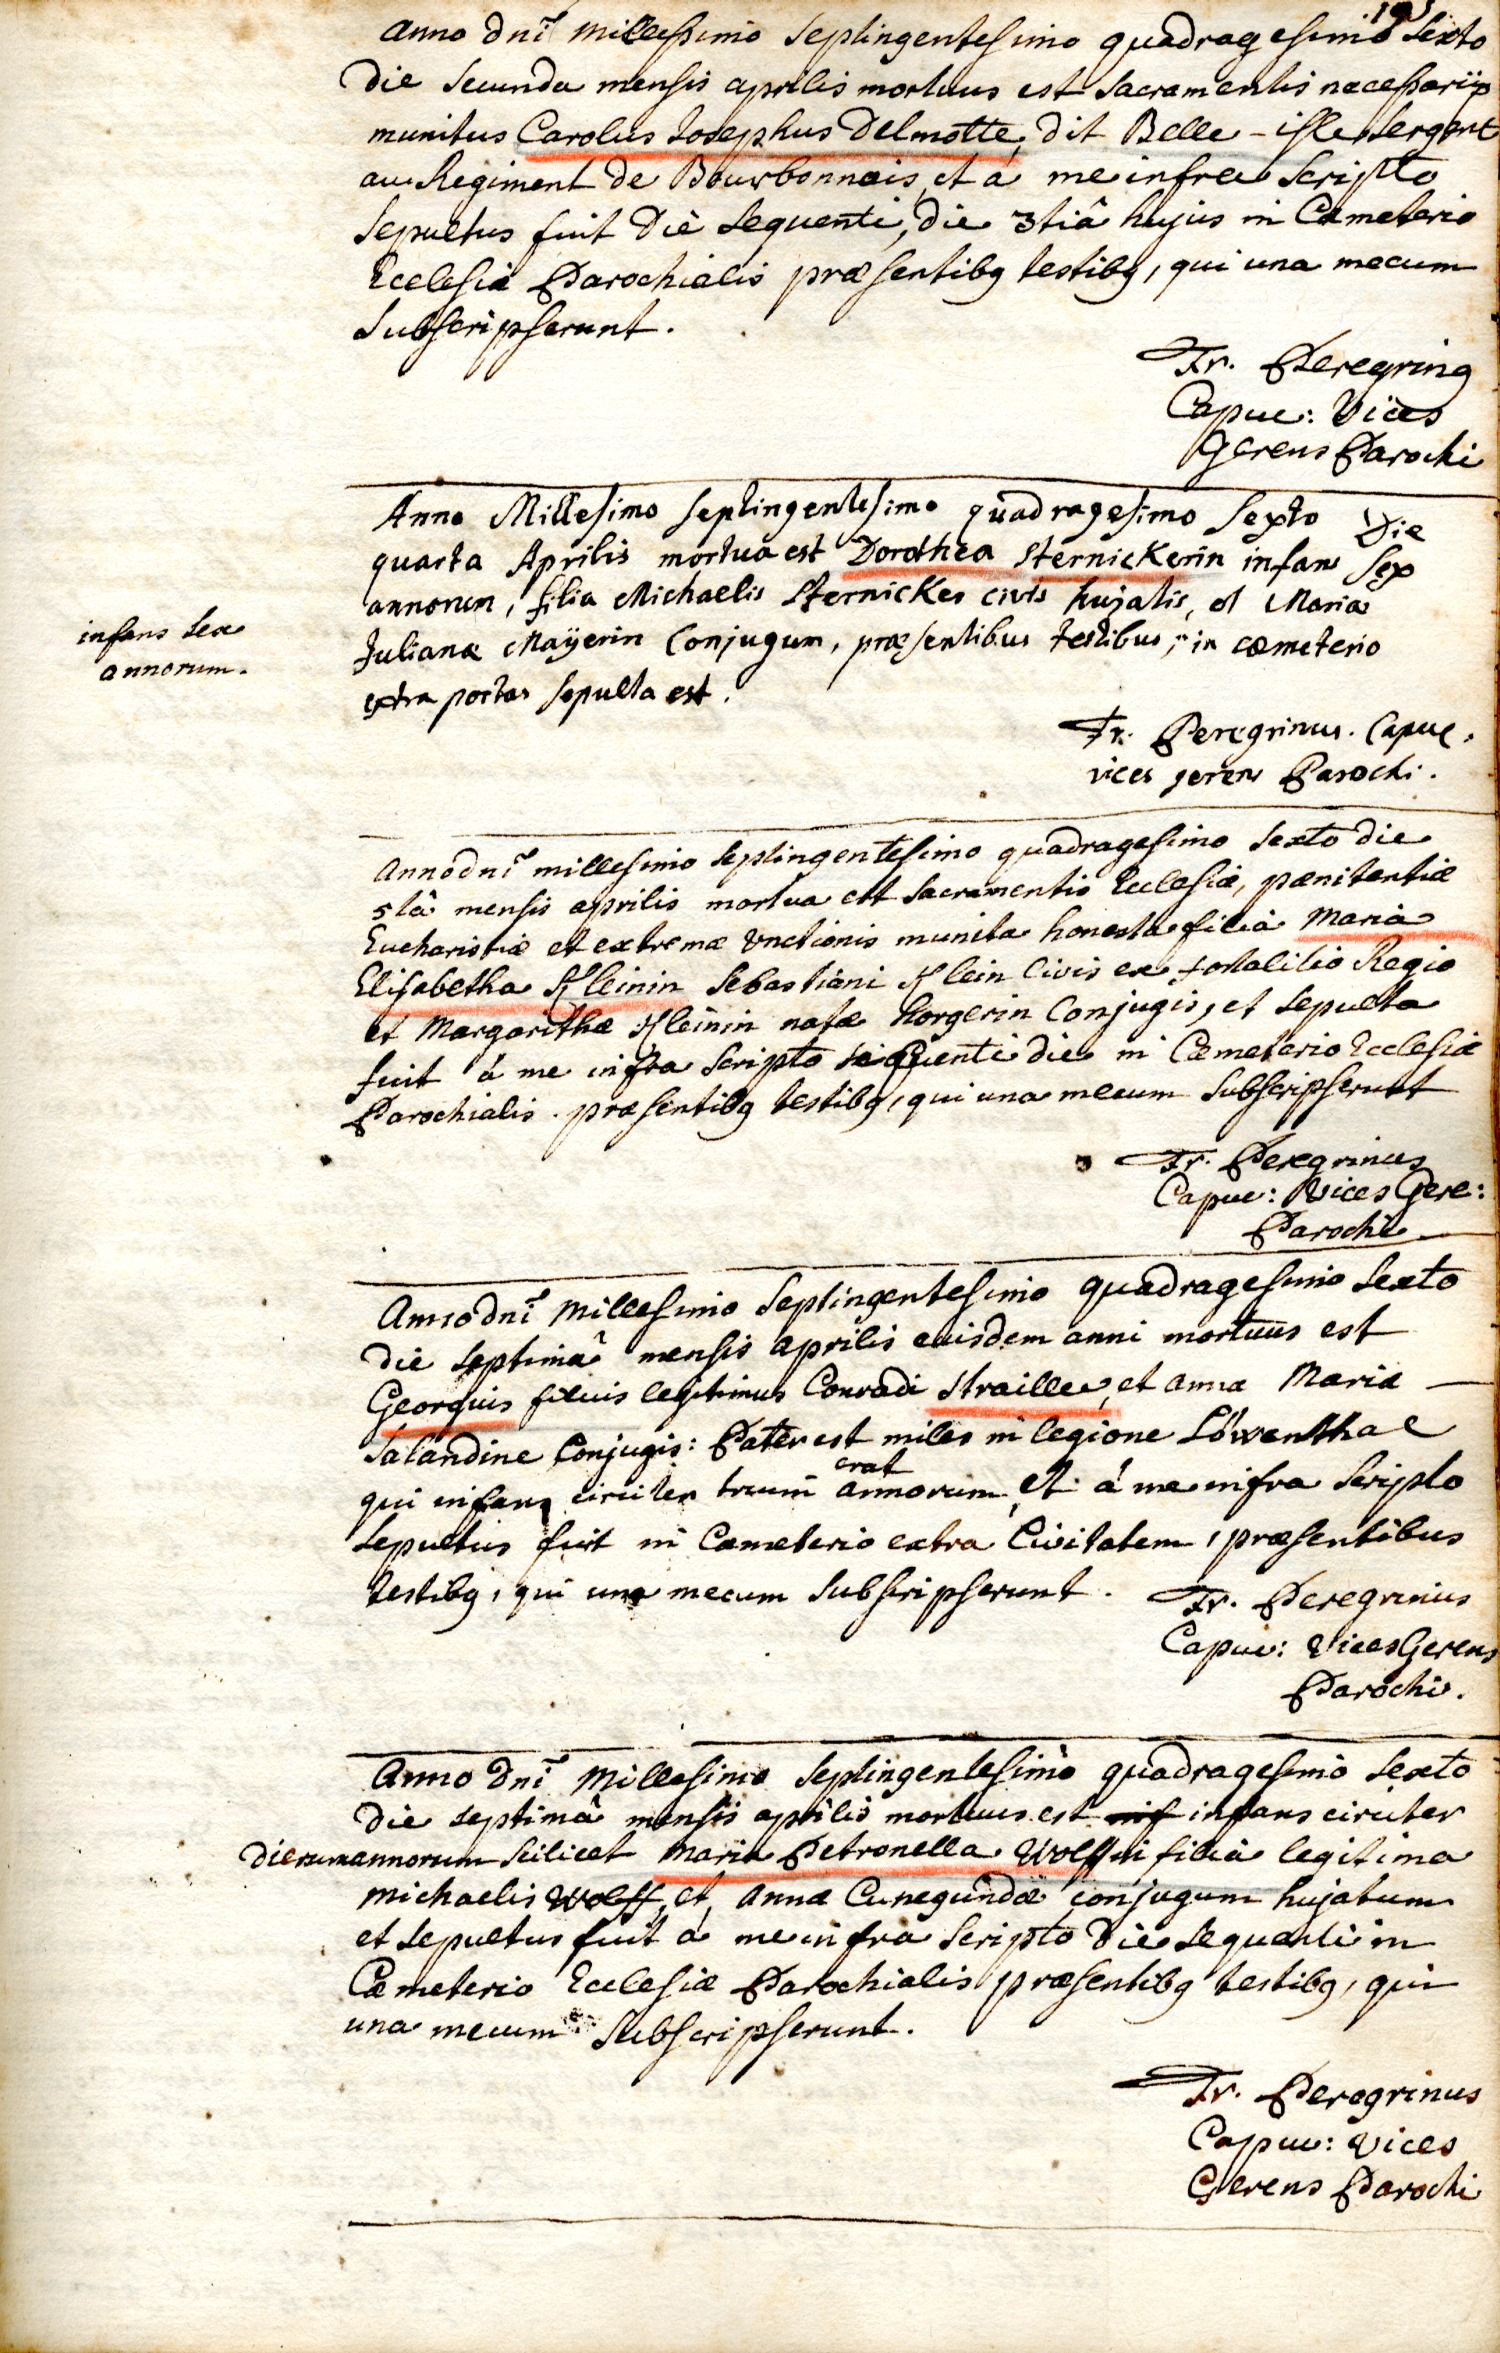 Anno Dni Millesimo Septingentesimo quadragesimo Sexto
Die Secunda mensis aprilis mortuus est Sacramentis necessariis
munitus Carolus Josephus Delmotte, dit Belle-isle Sergent
au Regiment de Bourbonnais, et a me infra Scripto
Sepultus fuit Die Sequenti, die 3tiâ hujus in Cæmeterio
Ecclesiæ Parochialis præsentibg testibg, qui una mecum
Subscripserunt.
Fr. Peregring
Capuc: Vices
Gerens Parochi
Anno Millesimo Septingentesimo quadragesimo Sexto Die
quarta Aprilis mortua est Dorothea Sternickerin infans Sex
annorum, filia Michaelis Sternickes civis hujatis, et Maria
infans Sex
annorum.
Julianæ Maÿerin Conjugum, præsentibus testibus, in cæmeterio
extra portas sepulta est.
Fr. Peregrinus. Capuc.
vices gerens Parochi.
Anno dni millesimo Septingentesimo quadragesimo Sexto die
5tâ mensis aprilis mortua est Sacramentis Ecclesiæ, pænitentiæ
Eucharistiæ et extremæ Unctionis munita honesta filia Maria
Elisabetha Kleinin Sebastiani Klein Civis ex fortalitio Regio
et Margarithæ Kleinin natæ Horgerin Conjugis, et Sepulta
fuit á me infra Scripto sequenti die in Cæmeterio Ecclesiæ
Parochialis. præsentibg testibg, qui una mecum Subscripserunt
Fr. Peregrinus
Capuc: Vices Gere:
Parochi
Anno dni Millesimo Septingentesimo quadragesimo Sexto
Die Septimâ mensis aprilis euisdem anni mortuus est
Georgius filius legitimus Conradi Straille, et Anna Maria
Salandine Conjugis: Pater est miles in legione Löwenthal
qui infans circiter trium erat annorum, et á me infra Scripto
Sepultus fuit in Cæmeterio extra Civitatem, præsentibus
testibg, qui una mecum Subscripserunt.
Fr. Peregrinus
Capuc: Vices Gerens
Parochi.
Anno Dni Millesimo Septingentesimo quadragesimo Sexto
Die Septimâ mensis aprilis mortuus est inf infans circiter
Dierum annorum Scilicet Maria Petronella Wolffin filia legitima
Michaelis Wolff, et Annæ Cunegundæ conjugum hujatum
et Sepultus fuit á me infra Scripto Die Sequenti in
Cæmeterio Ecclesiæ Parochialis præsentibg testibg, qui
una mecum Subscripserunt.
Fr. Peregrinus
Capuc: Vices
Gerens Parochi